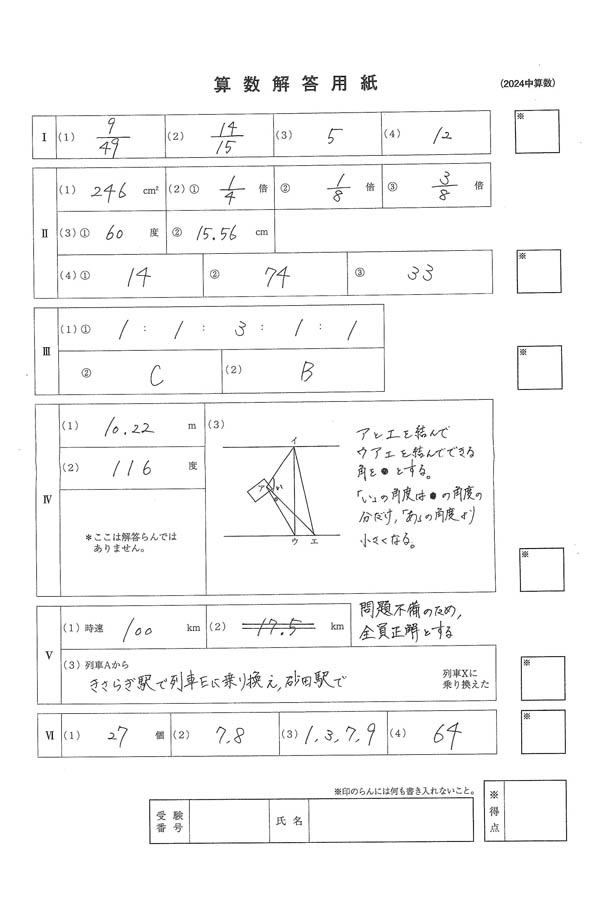 算数解答用紙
(2024中算数)
Ⅰ (1) 9/49 (2) 14/15 (3) 5 (4) 12 ※
Ⅱ (1) 246 cm² (2)① 1/4 倍 ② 1/8 倍 ③ 3/8 倍
(3)① 60 度 ② 15.56 cm
(4)① 14 ② 74 ③ 33 ※
Ⅲ (1)① 1 : 1 : 3 : 1 : 1
② C (2) B ※
Ⅳ (1) 10.22 m
(2) 116 度
*ここは解答らんでは
ありません。
(3)
イ
ア
ウ エ
アとエを結んで
ウアエを結んでできる
角を●とする。
「い」の角度は●の角度の
分だけ,「あ」の角度より
小さくなる。
※
Ⅴ (1)時速 100 km (2) 17.5 km
問題不備のため,
全員正解とする
(3)列車Aから
きさらぎ駅で列車Eに乗り換え,砂田駅で
列車Xに
乗り換えた
※
Ⅵ (1) 27 個 (2) 7,8 (3) 1,3,7,9 (4) 64 ※
※印のらんには何も書き入れないこと。
受験
番号
氏名
※
得
点